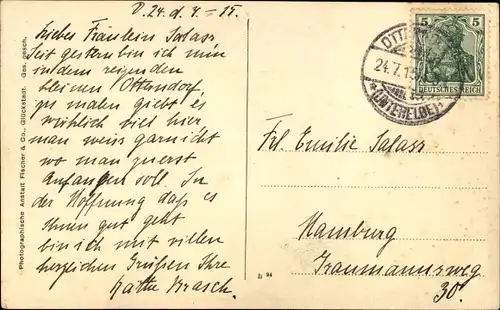 D. 24. d. 7. – 15.
Liebes Fräulein Salasz
Seit gestern bin ich nun
in dem reizenden
kleinen Otterndorf,
zu malen giebt es
wirklich viel hier,
man weiss garnicht
wo man zuerst
Anfangen soll. In
der Hoffnung daß es
Ihnen gut geht
bin ich mit vielen
herzlichen Grüßen Ihre
Käthe Brasch.
Photographische Anstalt Fischer & Co., Glückstadt. Ges. gesch.
24.7.15
*(UNTERELBE)*
5 5
DEUTSCHES REICH
Frl. Emilie Salasz
Hamburg
Traumannsweg
30.